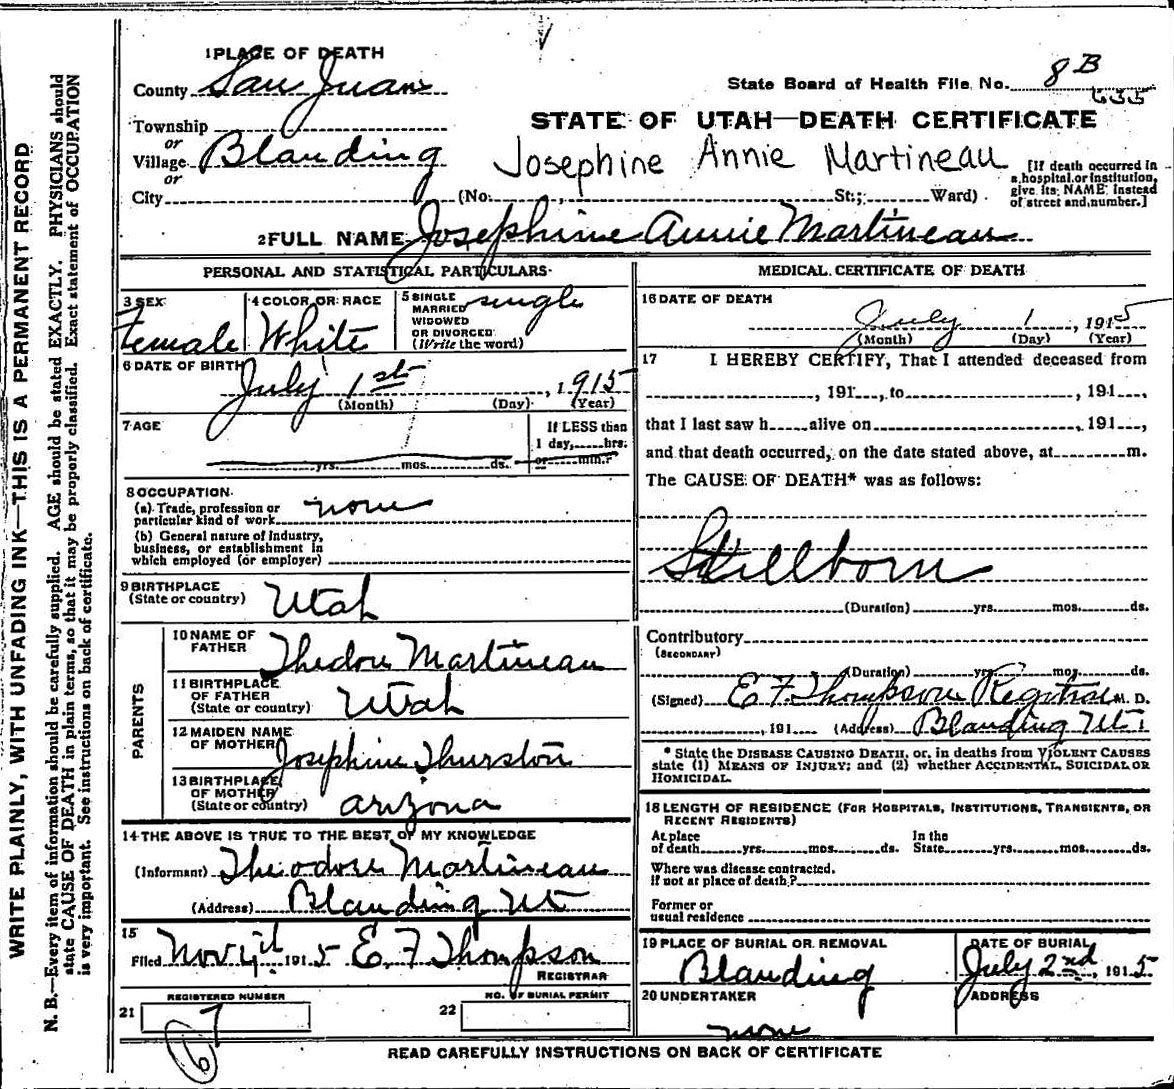 1 PLACE OF DEATH
County San Juan
State Board of Health File No. 8 B
635
Township
or
Village Blanding
or
City
STATE OF UTAH—DEATH CERTIFICATE
Josephine Annie Martineau
(No. , St.; Ward)
[If death occurred in a hospital or institution, give its NAME instead of street and number.]
2 FULL NAME Josephine Annie Martineau
PERSONAL AND STATISTICAL PARTICULARS
3 SEX
Female
4 COLOR OR RACE
White
5 SINGLE
MARRIED
WIDOWED
OR DIVORCED
(Write the word)
single
6 DATE OF BIRTH
July 1st , 1915
(Month) (Day) (Year)
7 AGE
yrs. mos. ds.
If LESS than
1 day, hrs.
or min.?
8 OCCUPATION
(a) Trade, profession or
particular kind of work none
(b) General nature of industry,
business, or establishment in
which employed (or employer)
9 BIRTHPLACE
(State or country) Utah
PARENTS
10 NAME OF
FATHER Thedore Martineau
11 BIRTHPLACE
OF FATHER
(State or country) Utah
12 MAIDEN NAME
OF MOTHER Josephine Thurston
13 BIRTHPLACE
OF MOTHER
(State or country) Arizona
14 THE ABOVE IS TRUE TO THE BEST OF MY KNOWLEDGE
(Informant) Theodore Martineau
(Address) Blanding Ut
15
Filed Nov 1915 E. F Thompson
REGISTRAR
21 REGISTERED NUMBER
7
6
22 NO. OF BURIAL PERMIT
MEDICAL CERTIFICATE OF DEATH
16 DATE OF DEATH
July 1 , 1915
(Month) (Day) (Year)
17 I HEREBY CERTIFY, That I attended deceased from
, 191 , to , 191 ,
that I last saw h alive on , 191 ,
and that death occurred, on the date stated above, at m.
The CAUSE OF DEATH* was as follows:
Stillborn
(Duration) yrs. mos. ds.
Contributory
(SECONDARY)
(Duration) yrs. mos. ds.
(Signed) E F Thompson Registrar M. D.
, 191 (Address) Blanding Ut.
* State the DISEASE CAUSING DEATH, or, in deaths from VIOLENT CAUSES
state (1) MEANS OF INJURY; and (2) whether ACCIDENTAL, SUICIDAL OR
HOMICIDAL.
18 LENGTH OF RESIDENCE (FOR HOSPITALS, INSTITUTIONS, TRANSIENTS, OR
RECENT RESIDENTS)
At place In the
of death yrs. mos. ds. State yrs. mos. ds.
Where was disease contracted,
If not at place of death?
Former or
usual residence
19 PLACE OF BURIAL OR REMOVAL
Blanding
DATE OF BURIAL
July 2nd, 1915
20 UNDERTAKER
none
ADDRESS
READ CAREFULLY INSTRUCTIONS ON BACK OF CERTIFICATE
WRITE PLAINLY, WITH UNFADING INK—THIS IS A PERMANENT RECORD
N. B.—Every item of information should be carefully supplied. AGE should be stated EXACTLY. PHYSICIANS should
state CAUSE OF DEATH in plain terms, so that it may be properly classified. Exact statement of OCCUPATION
is very important. See instructions on back of certificate.